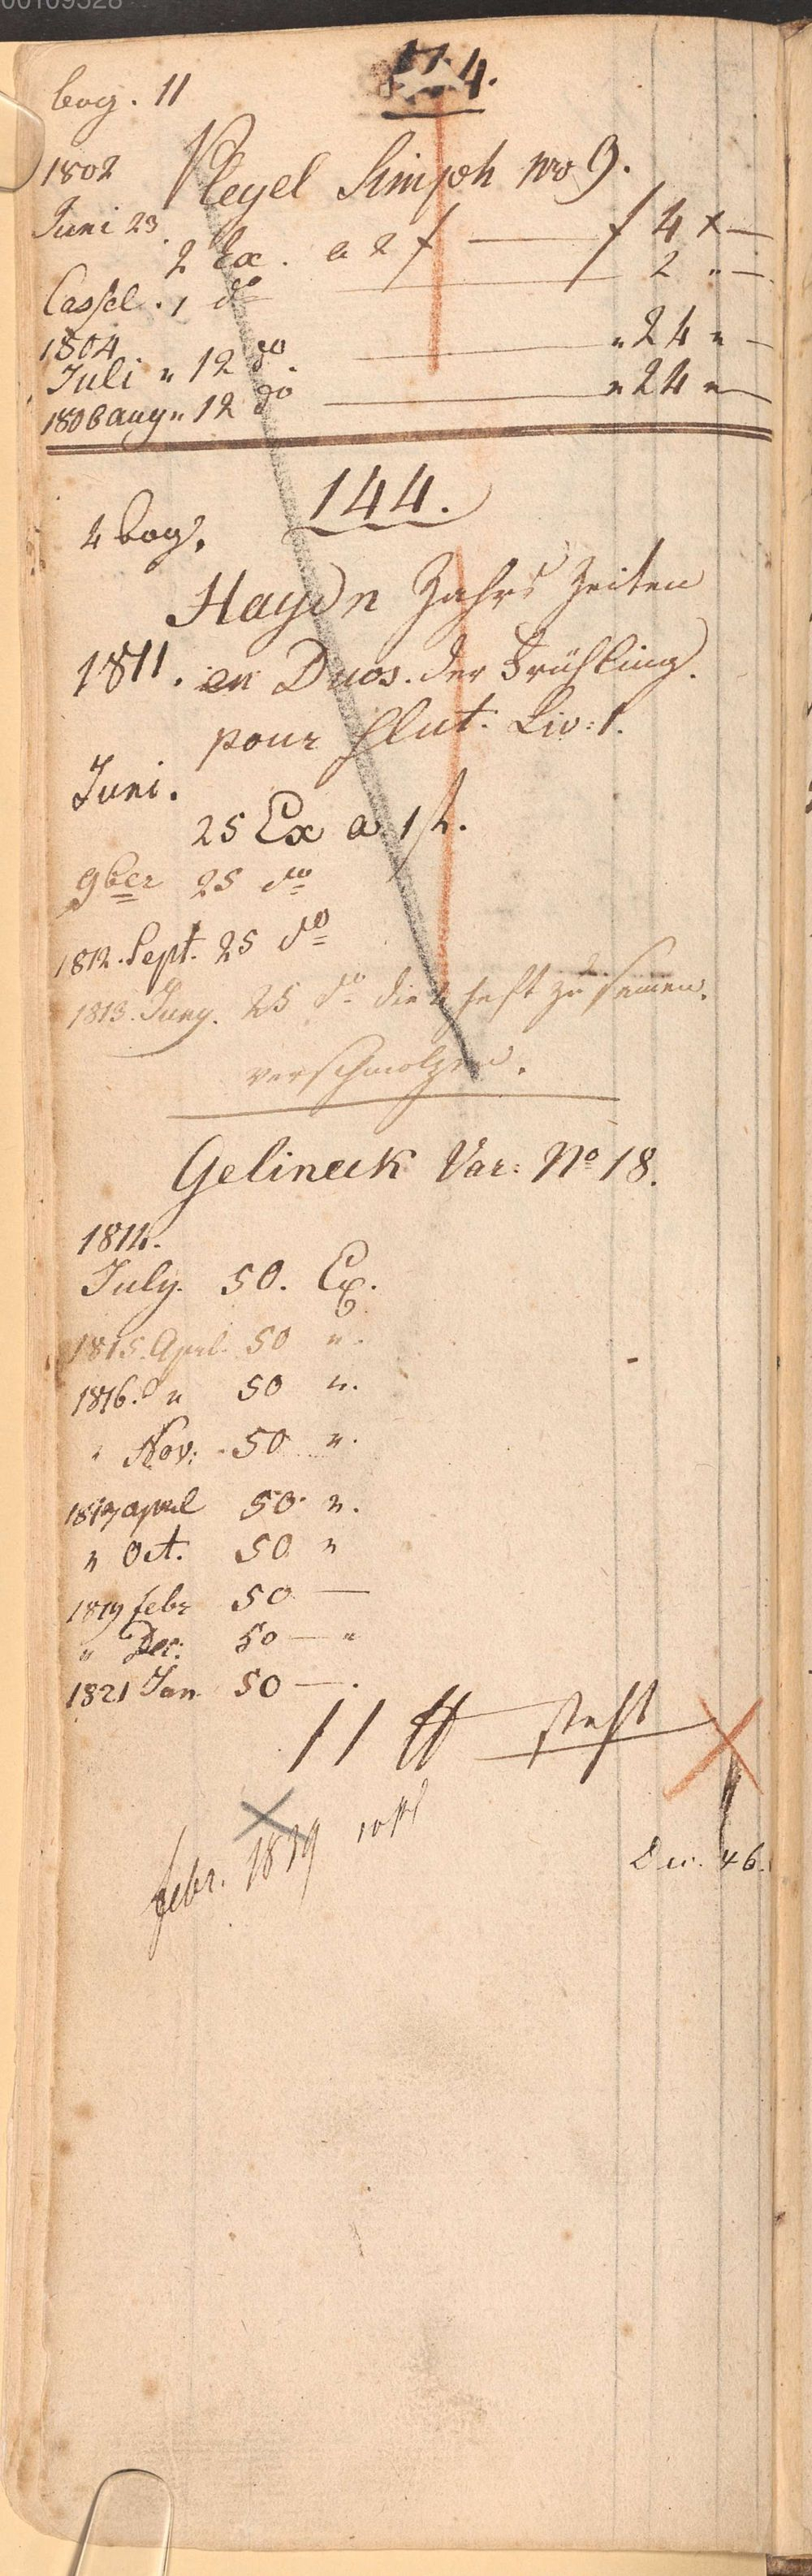 00109528
bog. 11
174.
1802
Pleyel Simph no 9.
Juni 23.
2 Ex. a 2 f — f 4 x —
Cassel. 1 do — 2 " —
1804
Juli " 12 do. — " 24 " —
1806 aug " 12 do — " 24 " —
144.
4 bog.
Haydn Jahrs Zeiten
1811. en Duos. der Frühling.
pour flut. Liv: 1.
Juni.
25 Ex a 1 f.
9ber 25 do
1812. Sept. 25 do
1813. Juny. 25 do die heft zu
verschmolzen.
Gelineck Var: No 18.
1814.
July. 50. Ex.
1815. Aprl. 50 ".
1816. " 50 ".
" Nov: 50 ".
1817 april 50. ".
" Oct. 50 "
1819 febr 50 —
" Dec: 50 — "
1821 Jan 50 — .
11 steht
febr. 1819
46.